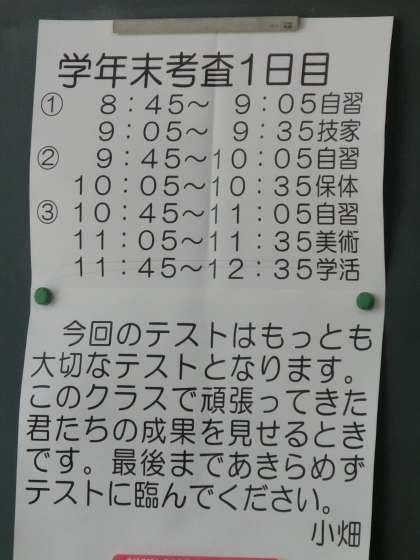 学年末考査1日目
① 8:45～ 9:05自習
9:05～ 9:35技家
② 9:45～10:05自習
10:05～10:35保体
③ 10:45～11:05自習
11:05～11:35美術
11:45～12:35学活
今回のテストはもっとも
大切なテストとなります。
このクラスで頑張ってきた
君たちの成果を見せるとき
です。最後まであきらめず
テストに臨んでください。
小畑